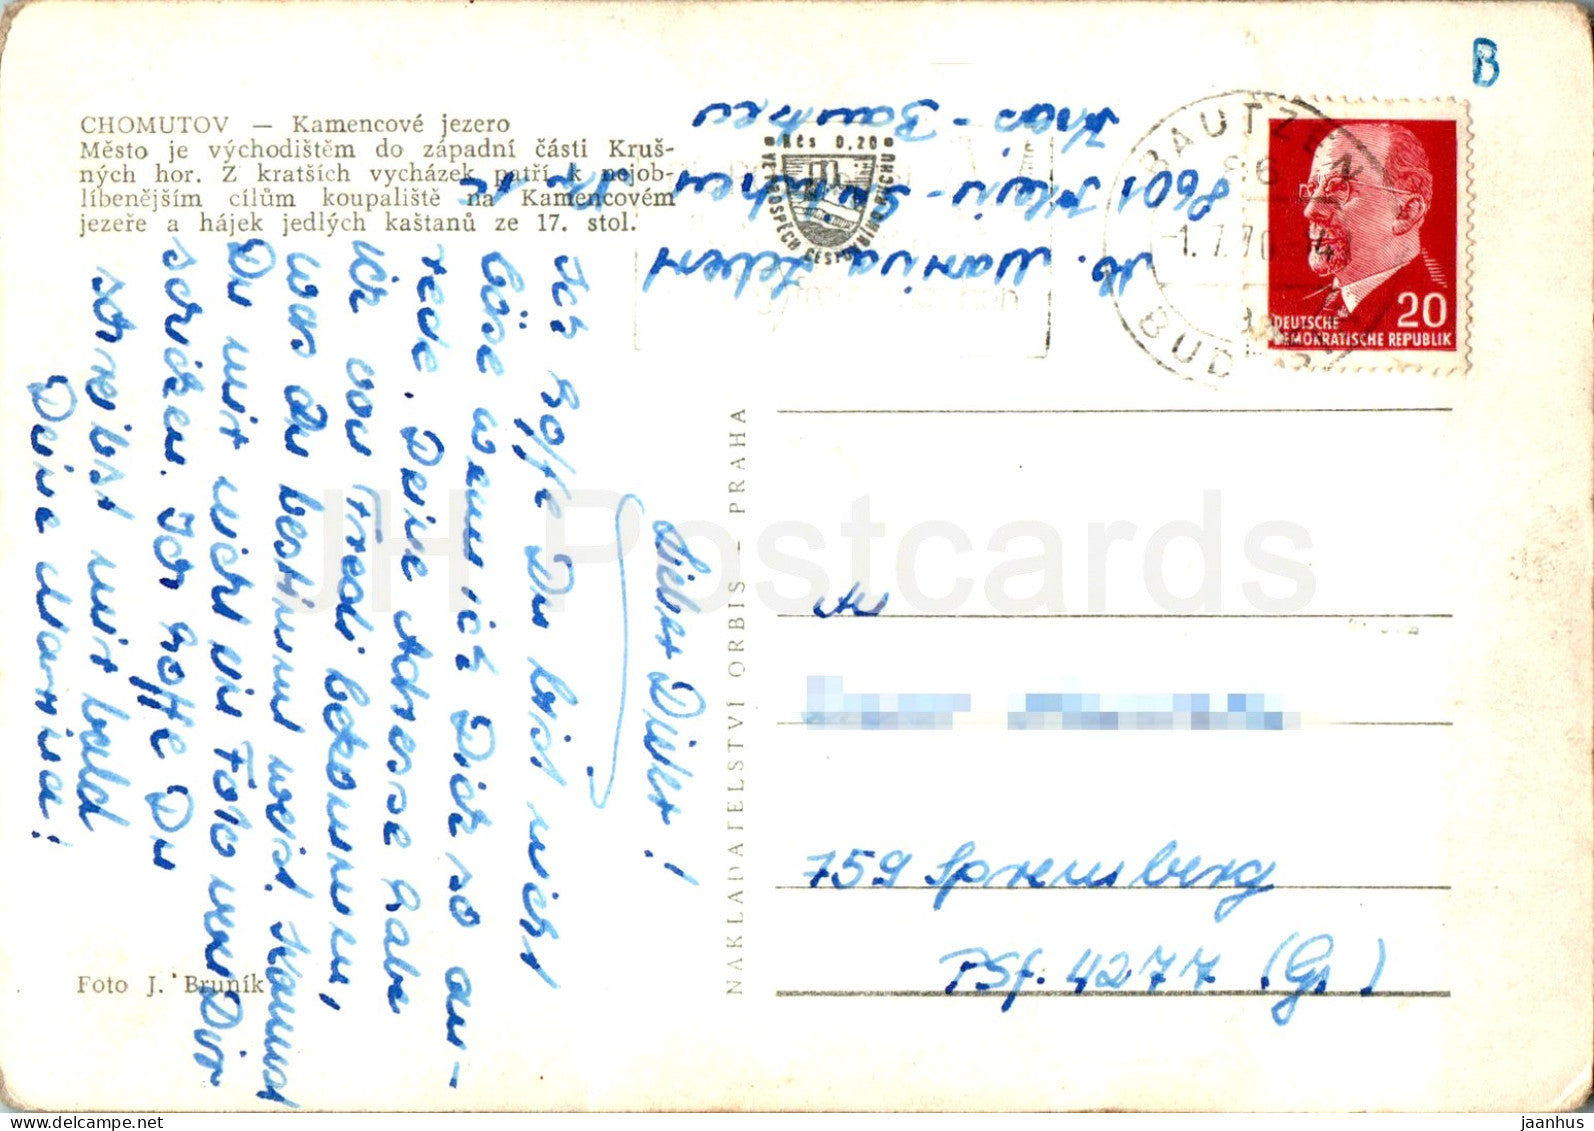 B
CHOMUTOV — Kamencové jezero
Město je východištěm do západní části Kruš-
ných hor. Z kratších vycházek patří k nejob-
líbenějším cílům koupaliště na Kamencovém
jezeře a hájek jedlých kaštanů ze 17. stol.
Kčs 0,20
VE PROSPĚCH CESTOVNÍHO RUCHU
BAUTZEN
86
-1.7.70
BUDY
20
DEUTSCHE
DEMOKRATISCHE REPUBLIK
M. Marina
8601 Klein-
Kreis-Bautzen
Lieber Dieter!
Ich hoffe Du bist nicht
böse wenn ich Dich so an-
rede. Deine Adresse habe
ich von Fredi bekommen,
was Du bestimmt weist. Kannst
Du mir nicht ein Foto von Dir
schicken. Ich hoffe Du
schreibst mir bald
Deine Marina!
NAKLADATELSTVÍ ORBIS - PRAHA
An
759 Spremberg
PSf. 4277 (G)
Foto J. Bruník
JH Postcards
jaanhus @ delcampe.net